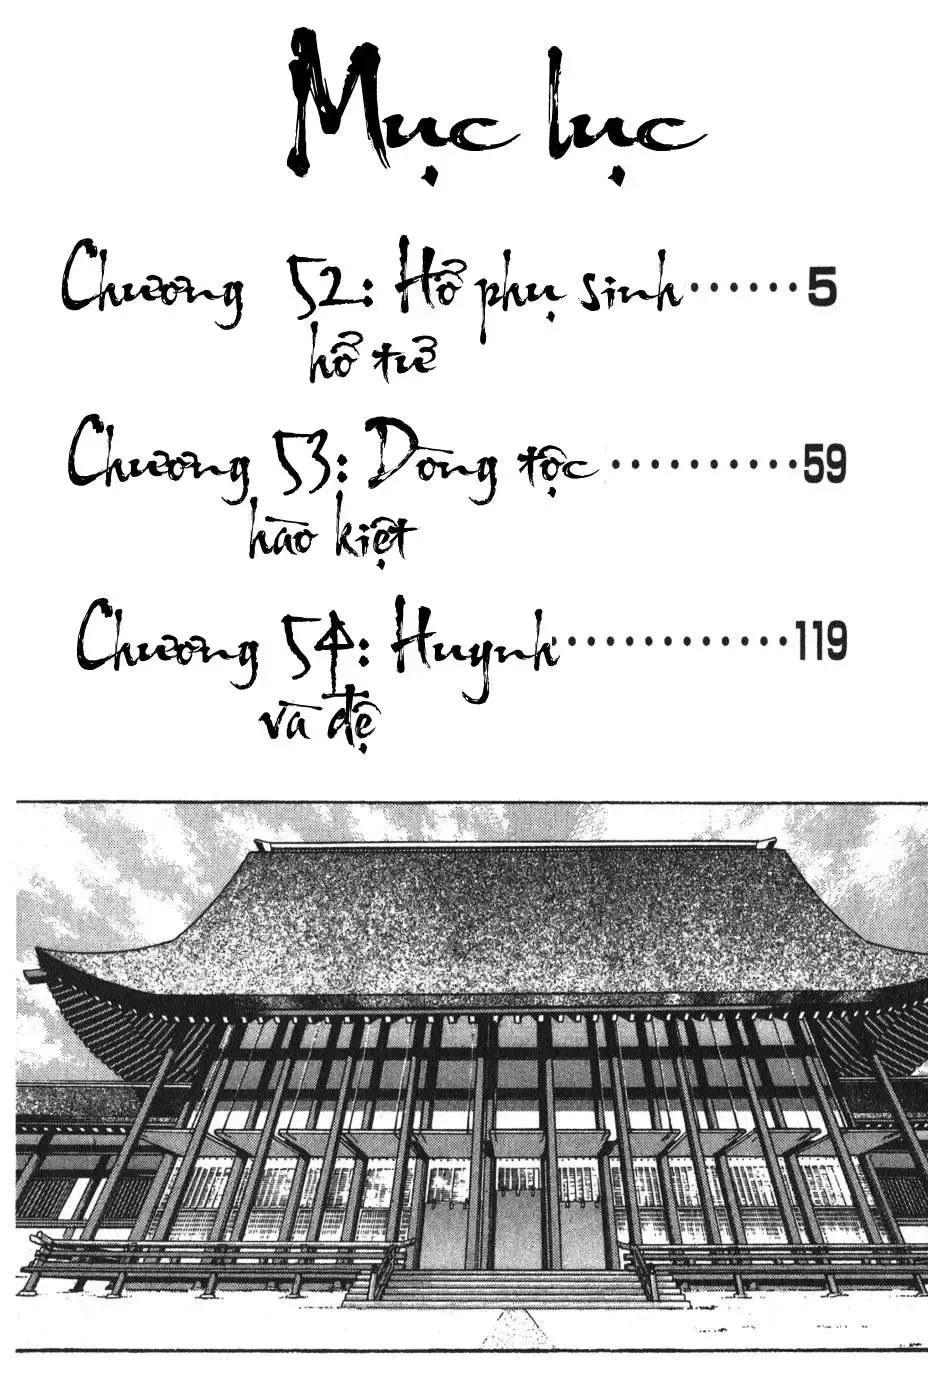 Mục lục
Chương 52: Hổ phụ sinh ······ 5
hổ tử
Chương 53: Dòng tộc ·········· 59
hào kiệt
Chương 54: Huynh ············· 119
và đệ